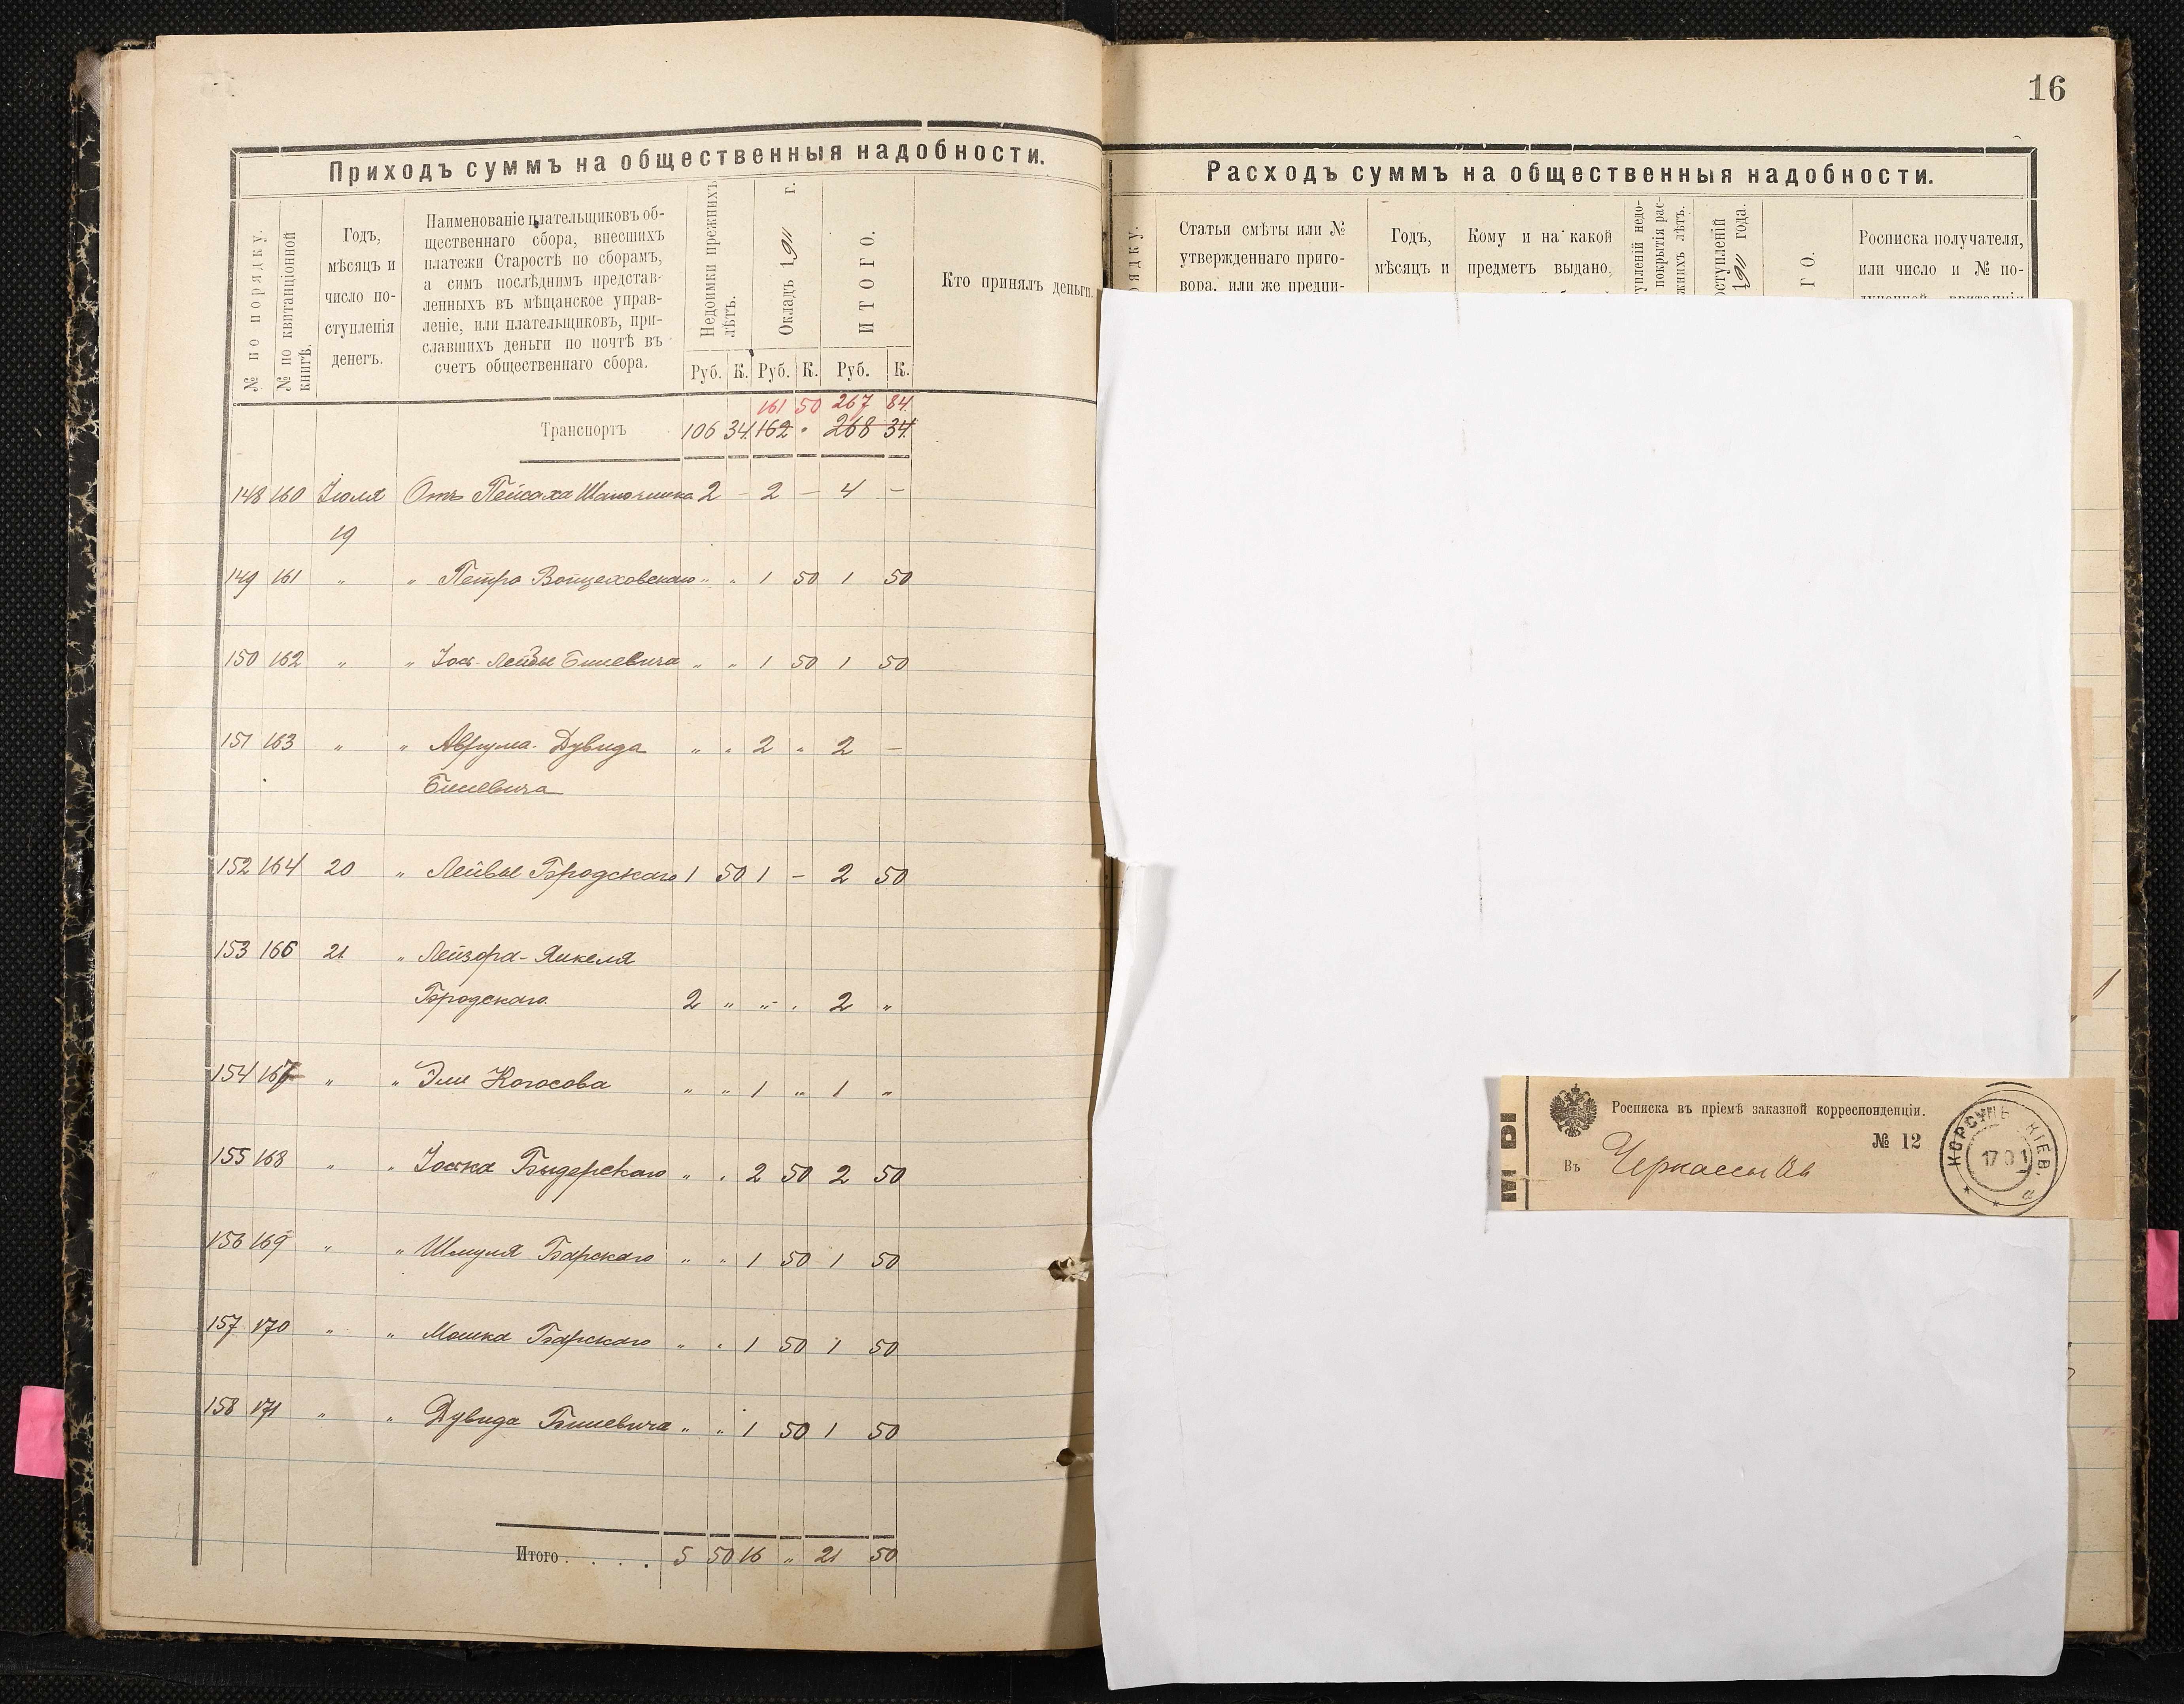 16
Приходъ суммъ на общественныя надобности.
№ по порядку.
№ по квитанціонной
книгѣ.
Годъ,
мѣсяцъ и
число по-
ступленія
денегъ.
Наименованіе плательщиковъ об-
щественнаго сбора, внесшихъ
платежи Старостѣ по сборамъ,
а симъ послѣднимъ представ-
ленныхъ въ мѣщанское управ-
леніе, или плательщиковъ, при-
славшихъ деньги по почтѣ въ
счетъ общественнаго сбора.
Недоимки прежнихъ
лѣтъ.
Окладъ 1911 г.
ИТОГО.
Кто принялъ деньги.
Руб. К. Руб. К. Руб. К.
161 50 267 84
Транспортъ 106 34 162 " 268 34
148 160 Іюля Отъ Пейсаха 2 - 2 - 4 -
19
149 161 " " Петра Войцеховскаго " " 1 50 1 50
150 162 " " Іос-Лейбы Билевича " " 1 50 1 50
151 163 " " Аврума-Дувида " " 2 " 2 -
Билевича
152 164 20 " Лейбы Бродскаго 1 50 1 - 2 50
153 166 21 " Лейзора-Янкеля
Бродскаго 2 " " " 2 "
154 167 " " Эли Когосова " " 1 " 1 "
155 168 " " Іоська " " 2 50 2 50
156 169 " " Шмуля Барскаго " " 1 50 1 50
157 170 " " Мошка Барскаго " " 1 50 1 50
158 171 " " Дувида Билевича " " 1 50 1 50
Итого . . . . 5 50 16 " 21 50
Расходъ суммъ на общественныя надобности.
Статьи смѣты или №
утвержденнаго приго-
вора, или же предпи-
Годъ,
мѣсяцъ и
Кому и на какой
предметъ выдано,
1911 года.
Росписка получателя,
или число и № по-
Росписка въ пріемѣ заказной корреспонденціи.
№ 12
Въ Черкассы
КОРСУНЬ КІЕВ.